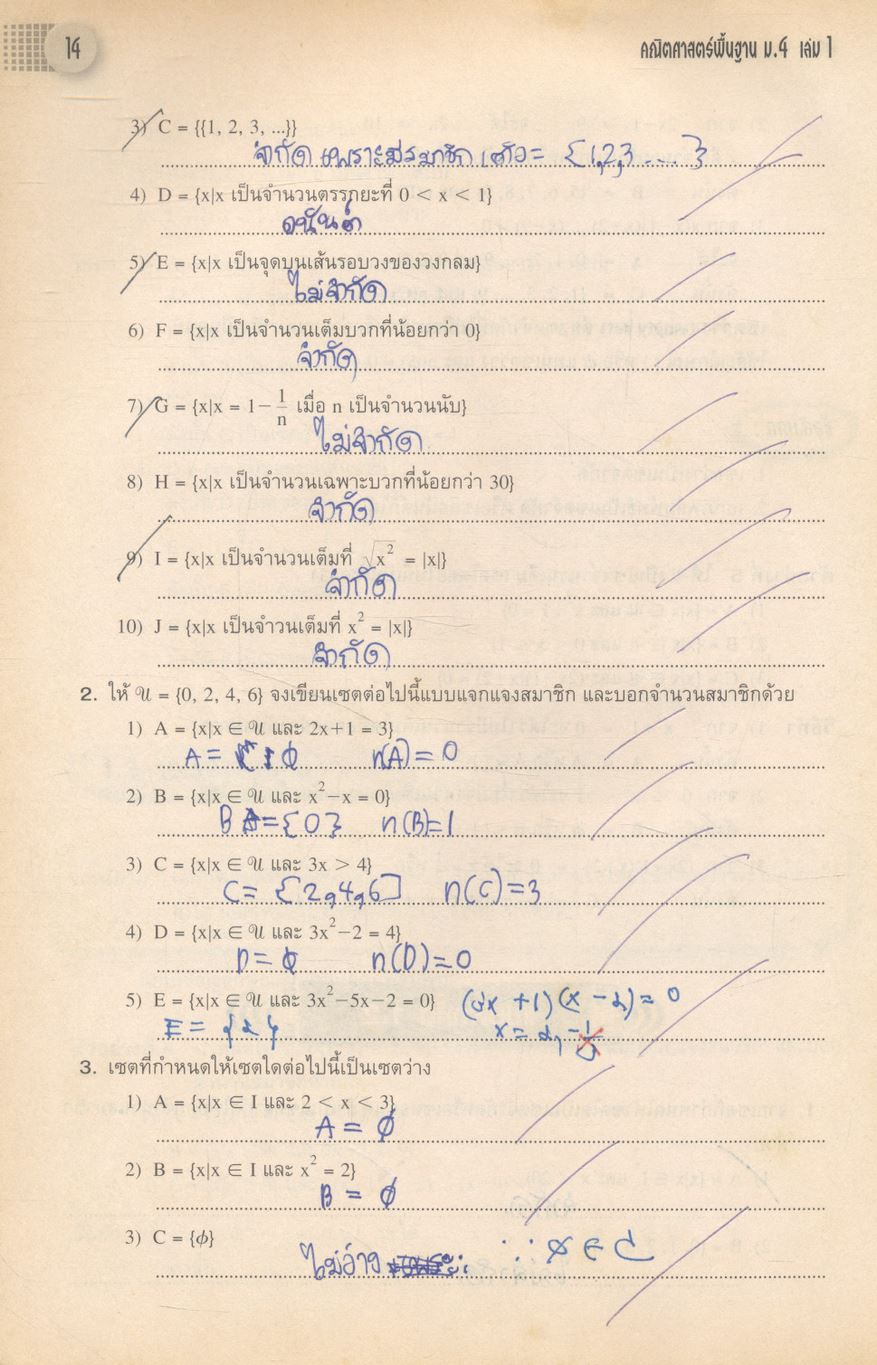 14
คณิตศาสตร์พื้นฐาน ม.4 เล่ม 1
3) C = {{1, 2, 3, ...}}
จำกัด เพราะมีสมาชิก 1 ตัว = {1,2,3 ....}
4) D = {x|x เป็นจำนวนตรรกยะที่ 0 < x < 1}
อนันต์
5) E = {x|x เป็นจุดบนเส้นรอบวงของวงกลม}
ไม่จำกัด
6) F = {x|x เป็นจำนวนเต็มบวกที่น้อยกว่า 0}
จำกัด
7) G = {x|x = 1 − 1/n เมื่อ n เป็นจำนวนนับ}
ไม่จำกัด
8) H = {x|x เป็นจำนวนเฉพาะบวกที่น้อยกว่า 30}
จำกัด
9) I = {x|x เป็นจำนวนเต็มที่ √x² = |x|}
จำกัด
10) J = {x|x เป็นจำวนเต็มที่ x² = |x|}
จำกัด
2. ให้ 𝒰 = {0, 2, 4, 6} จงเขียนเซตต่อไปนี้แบบแจกแจงสมาชิก และบอกจำนวนสมาชิกด้วย
1) A = {x|x ∈ 𝒰 และ 2x+1 = 3}
A = ϕ n(A) = 0
2) B = {x|x ∈ 𝒰 และ x²−x = 0}
B = {0} n(B)=1
3) C = {x|x ∈ 𝒰 และ 3x > 4}
C = {2,4,6} n(C) = 3
4) D = {x|x ∈ 𝒰 และ 3x²−2 = 4}
D = ϕ n(D) = 0
5) E = {x|x ∈ 𝒰 และ 3x²−5x−2 = 0} (3x +1)(x −2) = 0
E = {2} x = 2, −1/3
3. เซตที่กำหนดให้เซตใดต่อไปนี้เป็นเซตว่าง
1) A = {x|x ∈ I และ 2 < x < 3}
A = ϕ
2) B = {x|x ∈ I และ x² = 2}
B = ϕ
3) C = {ϕ}
ไม่ว่าง ∵ ϕ ∈ C